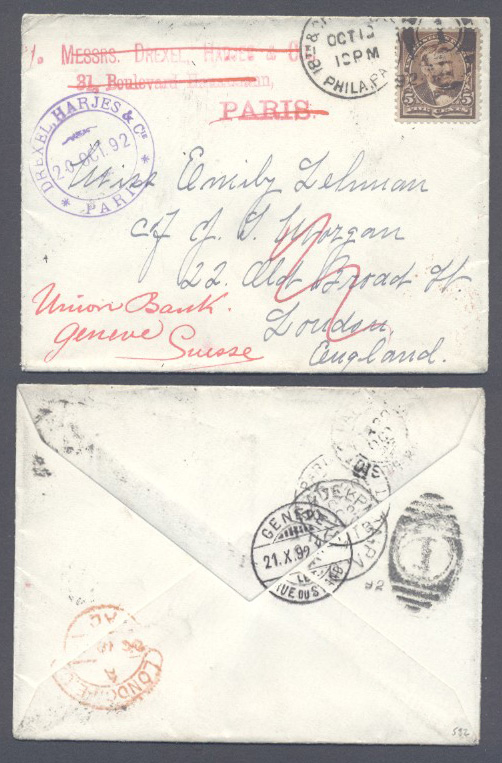 MESSRS. DREXEL, HARJES & Co.
31, Boulevard Haussmann,
PARIS.
18TH &
OCT 1
10 PM
PHILA. PA
5 5
DREXEL, HARJES & CIE
20 OCT. 92
* PARIS *
Miss Emily Lehman
c/o J. S. Morgan
22 Old Broad St
London
England.
Union Bank.
Geneve
Suisse
GENEVE
21. X. 92
RUE DU STAND
1
LONDON
A
532